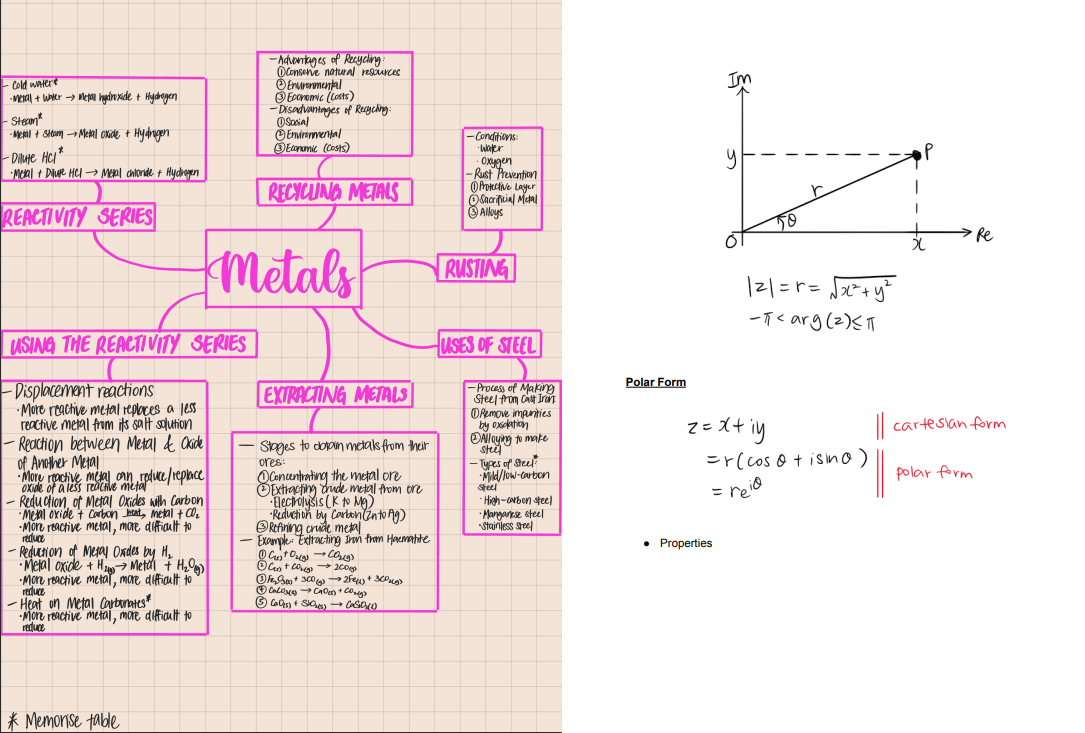 – Cold water*
· Metal + Water → Metal hydroxide + Hydrogen
– Steam*
· Metal + Steam → Metal oxide + Hydrogen
– Dilute HCl*
· Metal + Dilute HCl → Metal chloride + Hydrogen
REACTIVITY SERIES
– Advantages of Recycling:
① Conserve natural resources
② Environmental
③ Economic (Costs)
– Disadvantages of Recycling:
① Social
② Environmental
③ Economic (Costs)
RECYCLING METALS
– Conditions:
· Water
· Oxygen
– Rust Prevention
① Protective Layer
② Sacrificial Metal
③ Alloys
RUSTING
Metals
USING THE REACTIVITY SERIES
– Displacement reactions
· More reactive metal replaces a less
reactive metal from its salt solution
– Reaction between Metal & Oxide
of Another Metal
· More reactive metal can reduce/replace
oxide of a less reactive metal
– Reduction of Metal Oxides with Carbon
· Metal oxide + Carbon heat→ metal + CO₂
· More reactive metal, more difficult to
reduce
– Reduction of Metal Oxides by H₂
· Metal oxide + H₂(g) → Metal + H₂O(g)
· More reactive metal, more difficult to
reduce
– Heat on Metal Carbonates*
· More reactive metal, more difficult to
reduce
EXTRACTING METALS
– Stages to obtain metals from their
ores:
① Concentrating the metal ore
② Extracting crude metal from ore
· Electrolysis (K to Mg)
· Reduction by Carbon (Zn to Ag)
③ Refining crude metal
– Example: Extracting Iron from Haematite
① C(s) + O₂(g) → CO₂(g)
② C(s) + CO₂(g) → 2CO(g)
③ Fe₂O₃(s) + 3CO(g) → 2Fe(l) + 3CO₂(g)
④ CaCO₃(s) → CaO(s) + CO₂(g)
⑤ CaO(s) + SiO₂(s) → CaSiO₃(l)
USES OF STEEL
– Process of Making
Steel from Cast Iron:
① Remove impurities
by oxidation
② Alloying to make
steel
– Types of Steel*
· Mild/low-carbon
steel
· High-carbon steel
· Manganese steel
· Stainless steel
* Memorise table
Im
y
P
r
θ
O
x
Re
|z| = r = √x² + y²
-π < arg(z) ≤ π
Polar Form
z = x + iy
cartesian form
= r(cos θ + i sin θ)
polar form
= re^iθ
• Properties